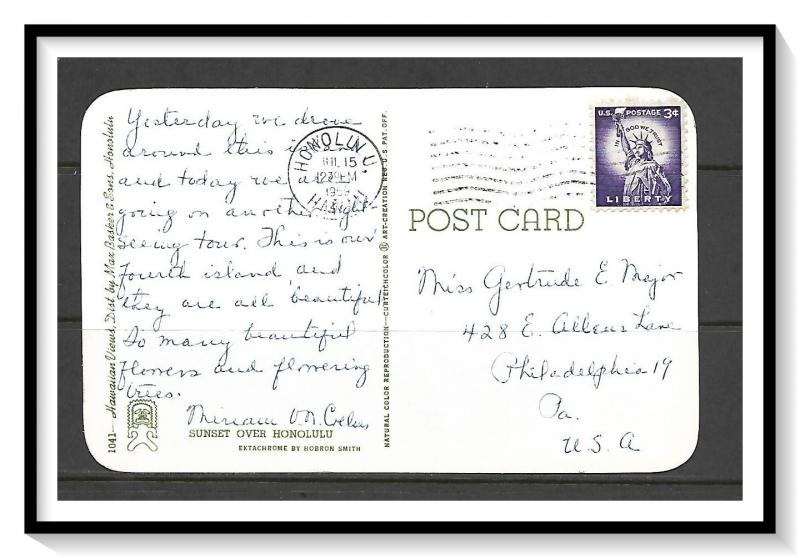 Yesterday we drove
around this
and today we are
going on another sight-
seeing tour. This is our
fourth island and
they are all beautiful
So many beautiful
flowers and flowering
trees.
Miriam
SUNSET OVER HONOLULU
EKTACHROME BY HOBRON SMITH
1041—Hawaiian Views, Dist. by Max Basker & Sons, Honolulu
NATURAL COLOR REPRODUCTION—CURTEICHCOLOR ART-CREATION REG. U.S. PAT. OFF.
HONOLULU
JUL 15
HAWAII
U.S. POSTAGE 3¢
IN GOD WE TRUST
LIBERTY
POST CARD
Miss Gertrude E. Major
428 E. Allens Lane
Philadelphia 19
Pa.
U.S.A